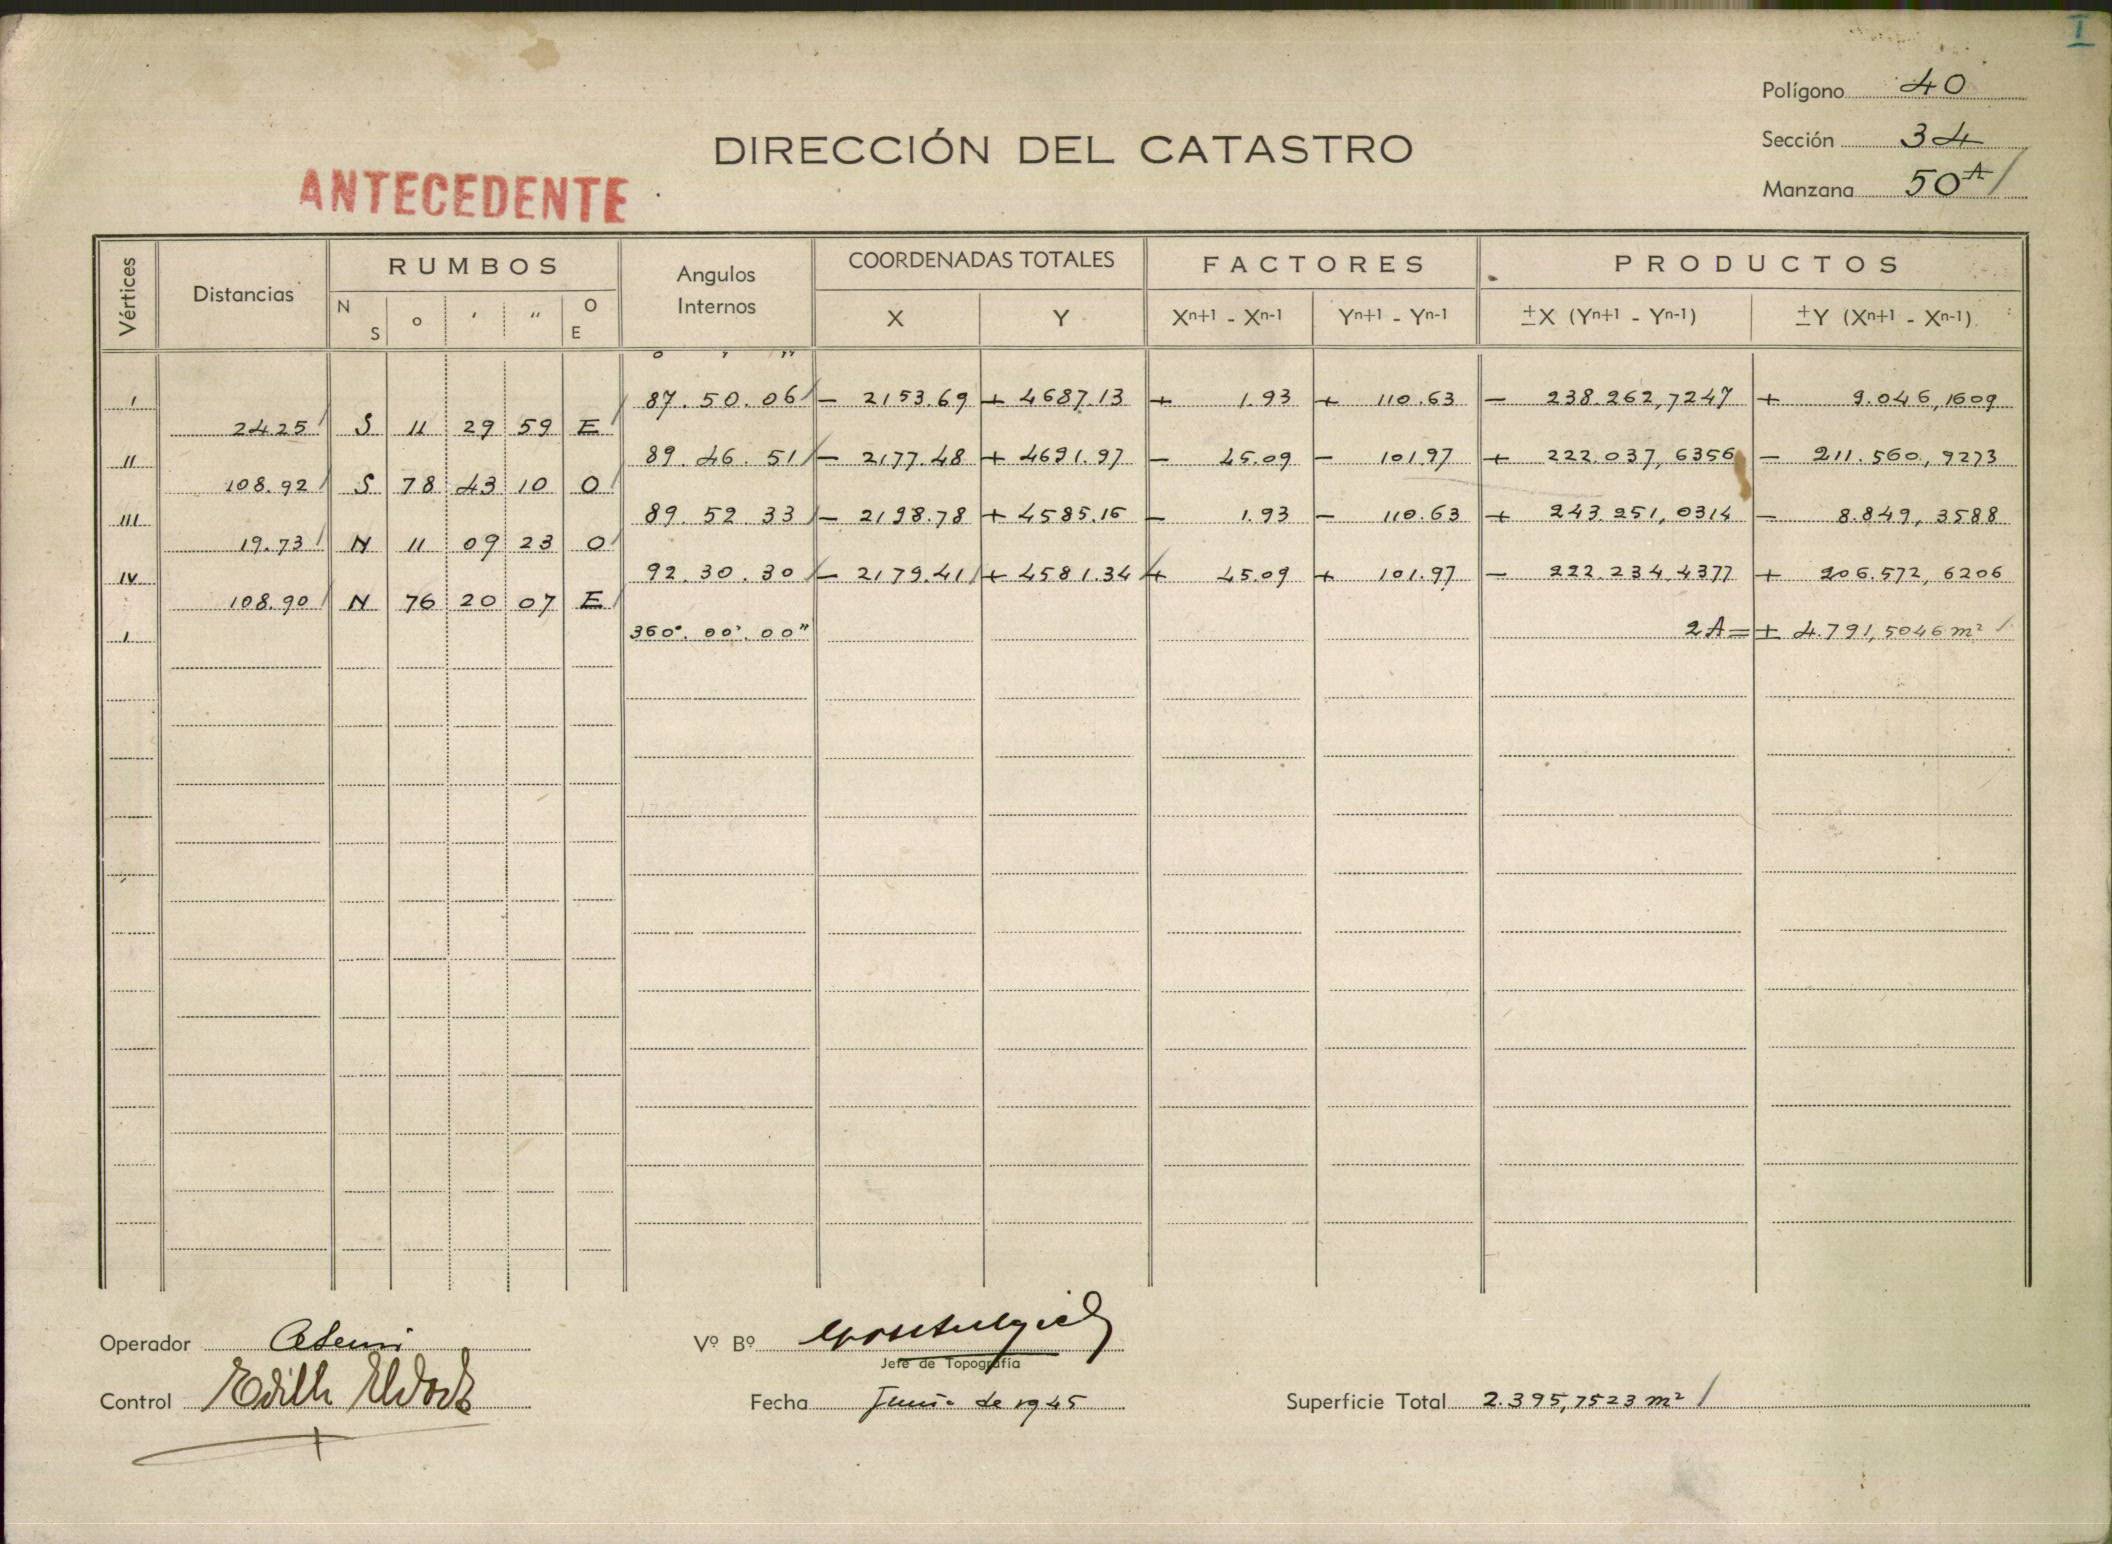 I
Polígono 40
DIRECCIÓN DEL CATASTRO
Sección 34
ANTECEDENTE
Manzana 50A
Vértices Distancias RUMBOS Angulos Internos COORDENADAS TOTALES FACTORES PRODUCTOS
N S o ' " O E X Y Xn+1 - Xn-1 Yn+1 - Yn-1 ±X (Yn+1 - Yn-1) ±Y (Xn+1 - Xn-1)
o ' "
I 87.50.06 - 2153.69 + 4687.13 + 1.93 + 110.63 - 238.262,7247 + 9.046,1609
24.25 S 11 29 59 E
II 89.46.51 - 2177.48 + 4691.97 - 45.09 - 101.97 + 222.037,6356 - 211.560,9273
108.92 S 78 43 10 O
III 89.52.33 - 2198.78 + 4585.16 - 1.93 - 110.63 + 243.251,0314 - 8.849,3588
19.73 N 11 09 23 O
IV 92.30.30 - 2179.41 + 4581.34 + 45.09 + 101.97 - 222.234,4377 + 206.572,6206
108.90 N 76 20 07 E
I 360°.00'.00" 2A = + 4.791,5046 m²
Operador
Vº Bº
Jefe de Topografía
Control Edith
Fecha Junio de 1945
Superficie Total 2.395,7523 m²